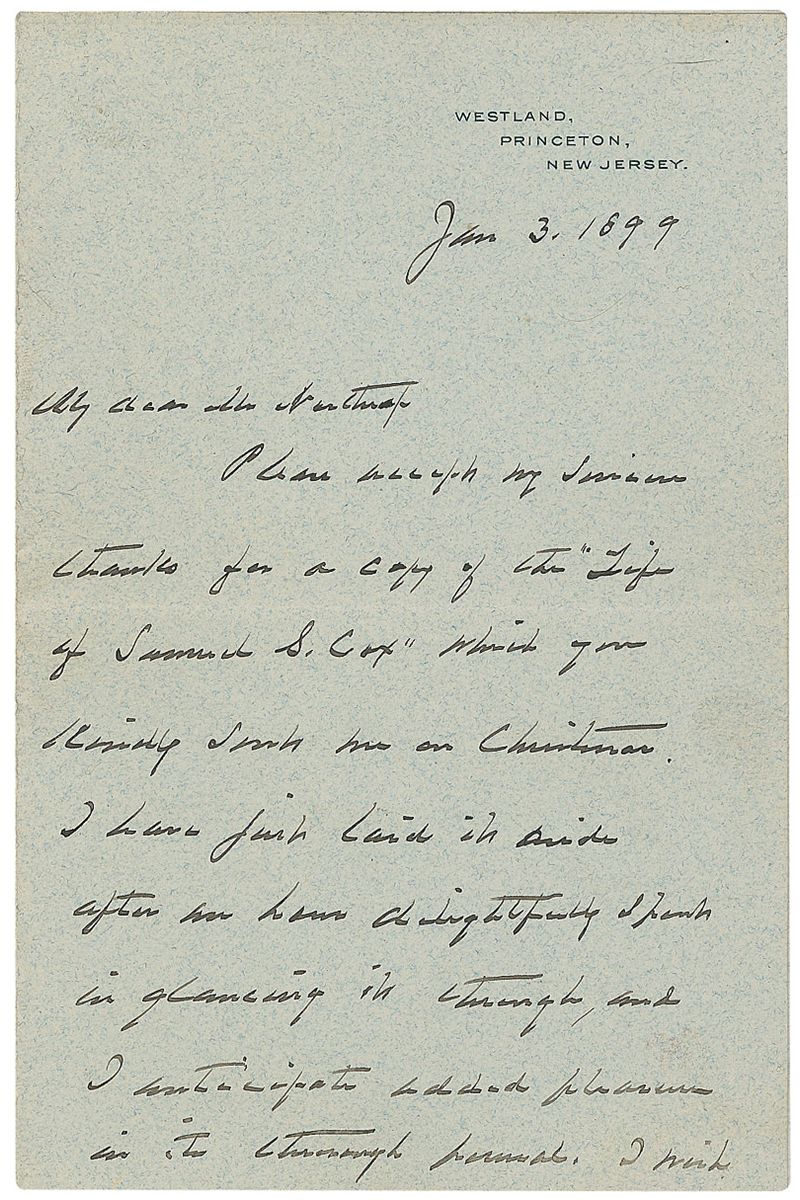 WESTLAND,
PRINCETON,
NEW JERSEY.
Jan 3. 1899
My dear Mr Northrop
Please accept my sincere
thanks for a copy of the "Life
of Samuel S. Cox" which you
kindly sent me on Christmas.
I have just laid it aside
after an hour delightfully spent
in glancing it through, and
I anticipate added pleasure
in its through perusal. I wish